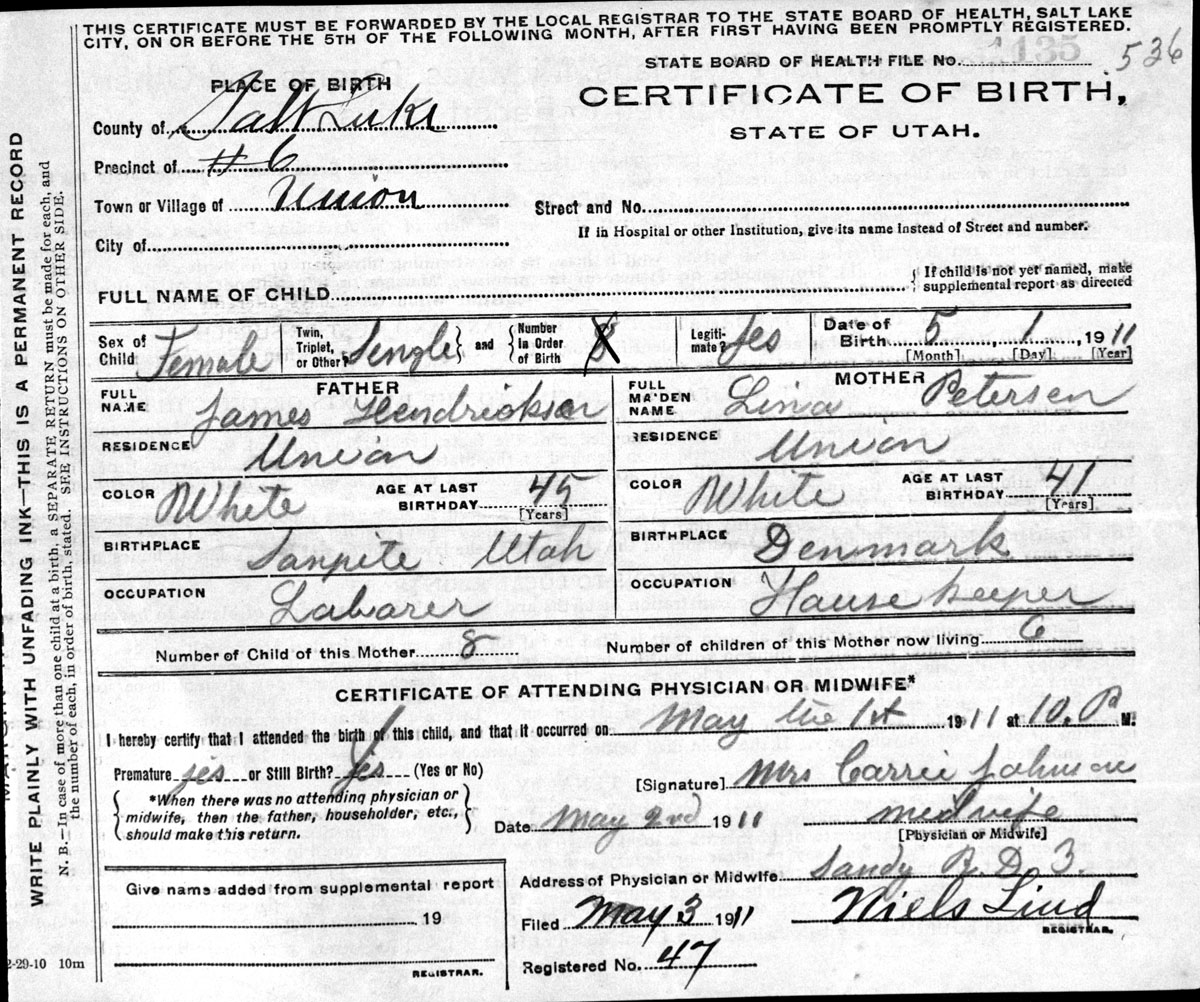 THIS CERTIFICATE MUST BE FORWARDED BY THE LOCAL REGISTRAR TO THE STATE BOARD OF HEALTH, SALT LAKE
CITY, ON OR BEFORE THE 5TH OF THE FOLLOWING MONTH, AFTER FIRST HAVING BEEN PROMPTLY REGISTERED.
STATE BOARD OF HEALTH FILE No. 1135 536
PLACE OF BIRTH
CERTIFICATE OF BIRTH,
STATE OF UTAH.
County of Salt Lake
Precinct of #6
Town or Village of Union
Street and No.
If in Hospital or other Institution, give its name instead of Street and number.
City of
FULL NAME OF CHILD
If child is not yet named, make
supplemental report as directed
Sex of Child Female Twin, Triplet, or Other? Single and Number In Order of Birth Legiti-mate? Yes Date of Birth 5 1 1911
[Month] [Day] [Year]
FATHER
MOTHER
FULL NAME James Hendrickson
FULL MAIDEN NAME Lina Petersen
RESIDENCE Union
RESIDENCE Union
COLOR White AGE AT LAST BIRTHDAY 45 [Years]
COLOR White AGE AT LAST BIRTHDAY 41 [Years]
BIRTHPLACE Sanpite Utah
BIRTHPLACE Denmark
OCCUPATION Labarer
OCCUPATION Hause keeper
Number of Child of this Mother 8 Number of children of this Mother now living 6
CERTIFICATE OF ATTENDING PHYSICIAN OR MIDWIFE*
I hereby certify that I attended the birth of this child, and that it occurred on May the 1st 1911 at 10. P M.
Premature yes or Still Birth? yes (Yes or No)
[Signature] Mrs Carrie Johnson
*When there was no attending physician or
midwife, then the father, householder, etc.,
should make this return.
Date May 2nd 1911 midwife
[Physician or Midwife]
Address of Physician or Midwife Sandy R. D. 3.
Give name added from supplemental report
19
REGISTRAR.
Filed May 3 1911 Niels Lind
REGISTRAR.
Registered No. 47
2-29-10 10m
WRITE PLAINLY WITH UNFADING INK—THIS IS A PERMANENT RECORD
N. B.—In case of more than one child at a birth, a SEPARATE RETURN must be made for each, and
the number of each, in order of birth, stated. SEE INSTRUCTIONS ON OTHER SIDE.